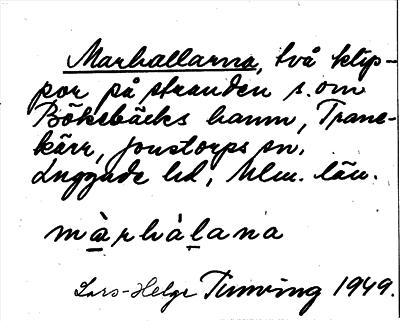 Marhallarna, två klip-
por på stranden s. om
Bökebäcks hamn, Trane-
kärr, Jonstorps sn.
Luggude hd, Mlm. län.
màrhàlana
Lars-Helge Tunving 1949.